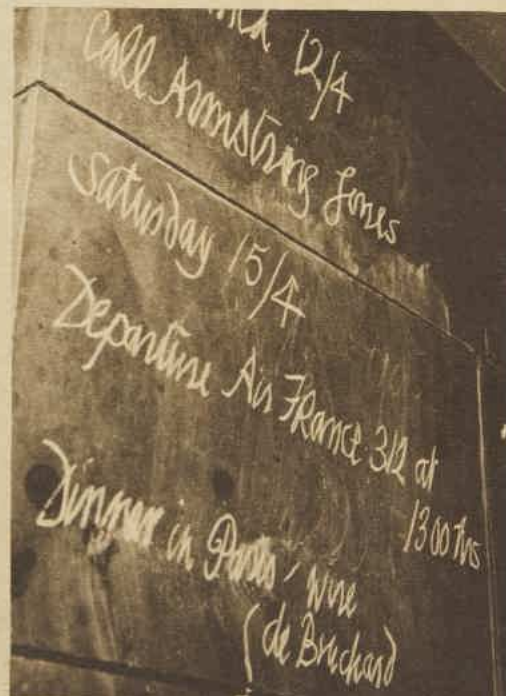 12/4
Call Armstrong Jones
Saturday 15/4
Departure Air France 312 at
1300 hrs
Dinner in Paris / wire
(de Brichard